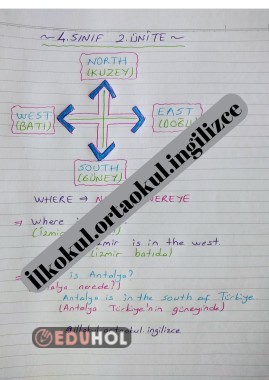 ~ 4. SINIF 2. ÜNİTE ~
NORTH
(KUZEY)
WEST
(BATI)
EAST
(DOĞU)
SOUTH
(GÜNEY)
WHERE → NEREYE
→ Where
(İzmir
is in the west
(İzmir batıda)
is Antalya?
nerede?)
Antalya is in the south of Türkiye
(Antalya Türkiye'nin güneyinde)
ilkokul.ortaokul.ingilizce
EDUHOL
@ilkokul.ortaokul.ingilizce